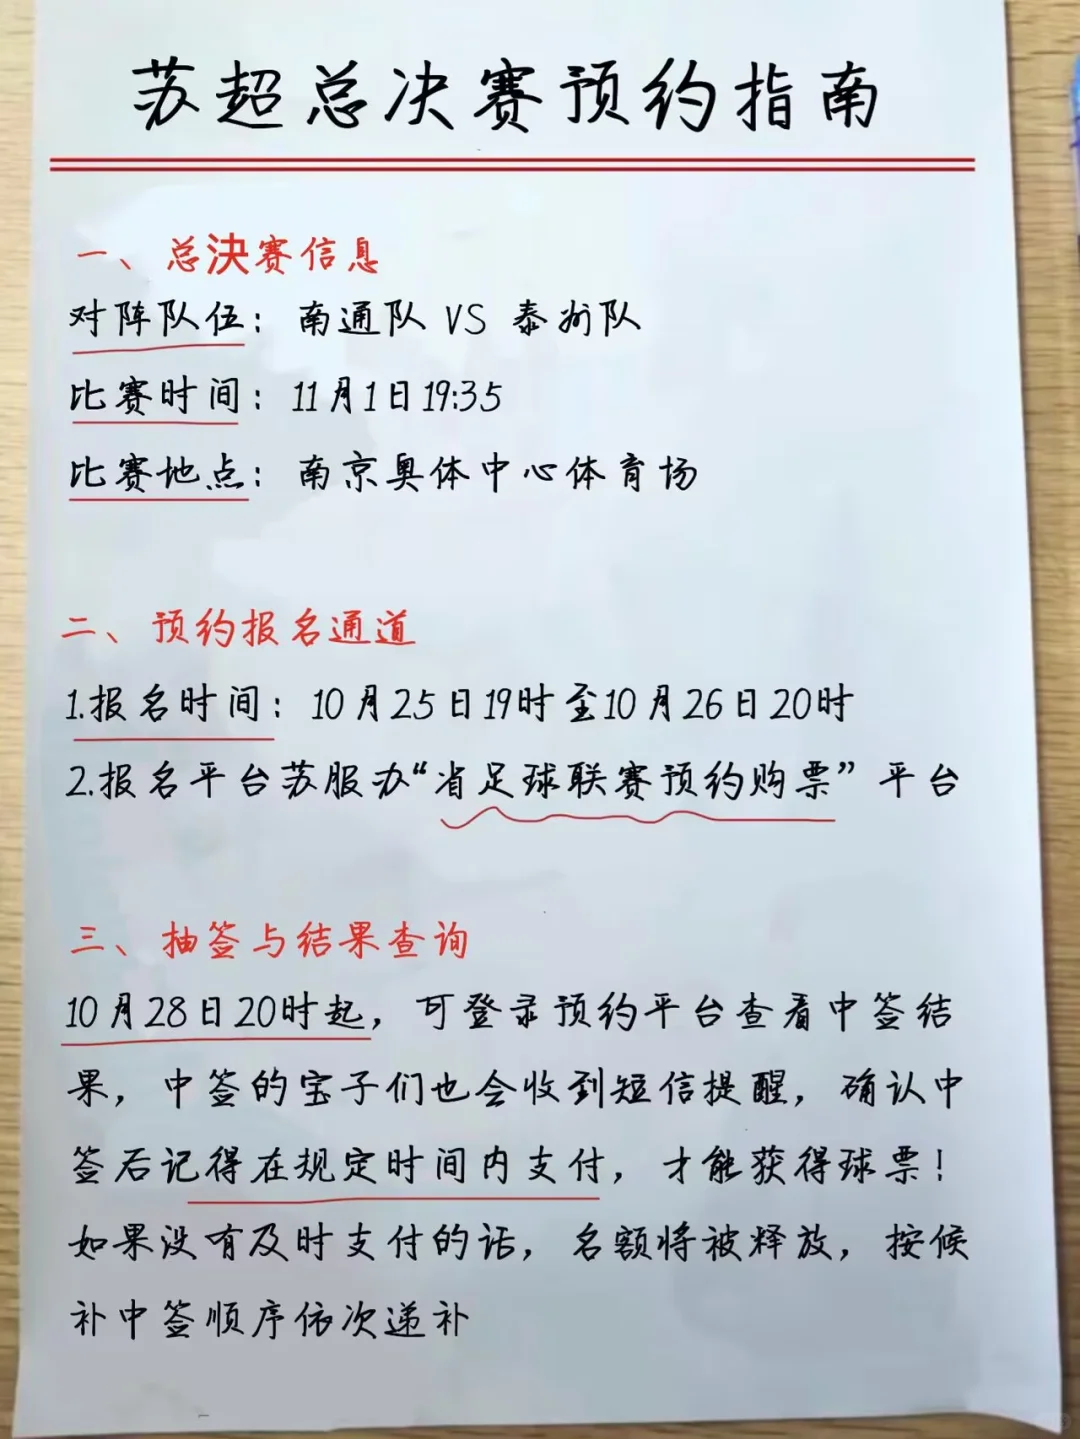 苏超总决赛预约指南
一、总決赛信息
对阵队伍：南通队 VS 泰州队
比赛时间：11月1日19:35
比赛地点：南京奥体中心体育场
二、预约报名通道
1.报名时间：10月25日19时至10月26日20时
2.报名平台苏服办“省足球联赛预约购票”平台
三、抽签与结果查询
10月28日20时起，可登录预约平台查看中签结
果，中签的宝子们也会收到短信提醒，确认中
签后记得在规定时间内支付，才能获得球票！
如果没有及时支付的话，名额将被释放，按候
补中签顺序依次递补